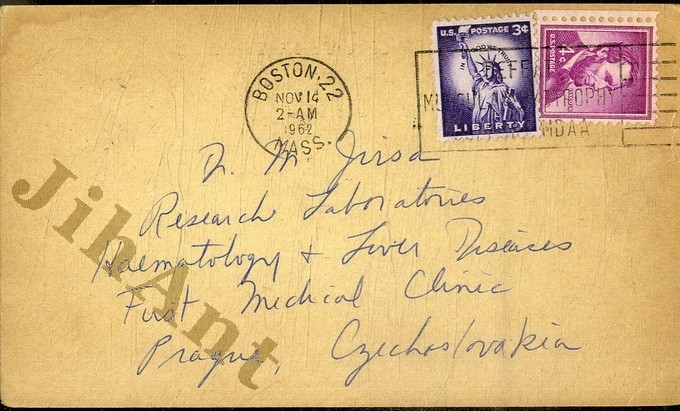 U.S. POSTAGE 3¢
IN GOD WE TRUST
LIBERTY
U.S. POSTAGE
4c
BOSTON, 22
NOV 14
2-AM
1962
MASS.
MDAA
Dr. M Jirsa
Research Laboratories
Haematology & Liver Diseases
First Medical Clinic
Prague, Czechoslovakia
JihAnt